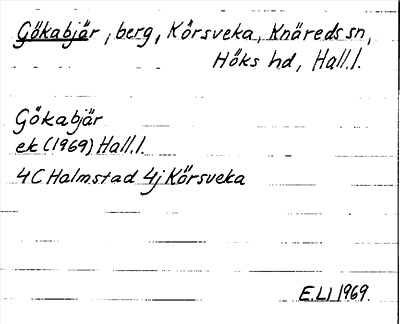 Gökabjär, berg, Körsveka, Knäreds sn,
Höks hd, Hall.l.
Gökabjär
ek (1969) Hall.l.
4C Halmstad 4j Körsveka
E.LJ 1969.